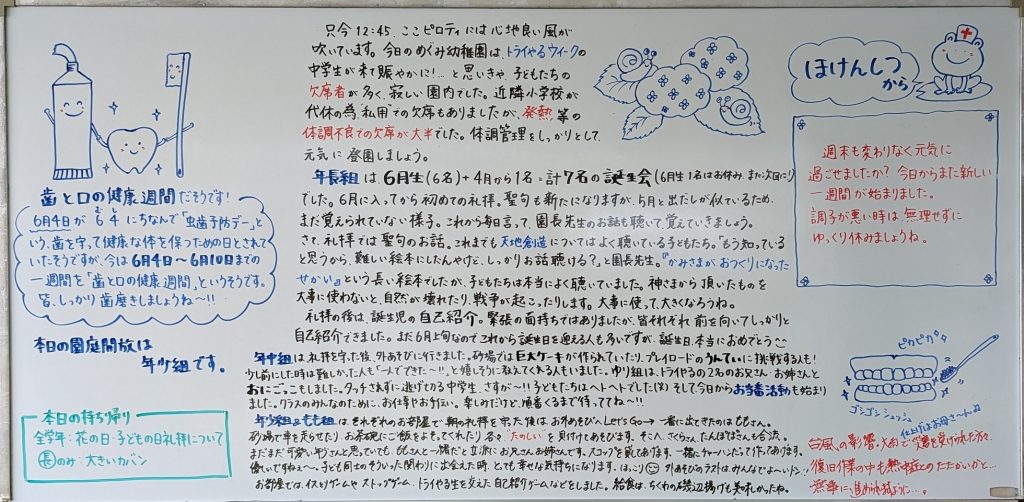 只今12:45、ここピロティには心地良い風が
吹いています。今日のめぐみ幼稚園は、トライやるウィークの
中学生が来て賑やかに!…と思いきや、子どもたちの
欠席者が多く、寂しい園内でした。近隣小学校が
代休の為、私用での欠席もありましたが、発熱等の
体調不良での欠席が大半でした。体調管理をしっかりとして、
元気に登園しましょう。
年長組は、6月生(6名)+4月から1名=計7名の誕生会(6月生1名はお休み、また次回に)
でした。6月に入ってから初めての礼拝。聖句も新たになりますが、5月と出だしが似ているため、
まだ覚えられない様子。これから毎日言って、園長先生のお話も聴いて、覚えていきましょう。
さて、礼拝では聖句のお話。これまでも天地創造についてはよく聴いている子どもたち。「もう知っている
と思うから、難しい絵本にしたんやけど、しっかりお話聴ける?」と園長先生。『かみさまがおつくりになった
せかい』という長い絵本でしたが、子どもたちは本当によく聴いていました。神さまから頂いたものを
大事に使わないと、自然が壊れたり、戦争が起こったりします。大事に使って、大きくなろうね。
礼拝の後は、誕生児の自己紹介。緊張の面持ちではありましたが、皆それぞれ前を向いてしっかりと
自己紹介できました。まだ6月上旬なのでこれから誕生日を迎える人も多いですが、誕生日、本当におめでとう
年中組は、礼拝を守った後、外あそびに行きました。砂場では巨大ケーキが作られていたり、プレイロードのうんていに挑戦する人も!
少し前にした時は難しかった人も「一人でできた〜!!」と嬉しそうに教えてくれる人もいました。ゆり組は、トライやるの2名のお兄さん・お姉さんと
おにごっこもしました。タッチされずに逃げ切る中学生、さすが〜!!子どもたちはヘトヘトでした(笑)そして今日からお当番活動も始まり
ました。クラスのみんなのために、お仕事やお手伝い。楽しみだけど、順番くるまで待っててね〜!!
年少組&もも組は、それぞれのお部屋で朝の礼拝を守った後は、お外あそびへLet's Go→一番に出てきたのはももさん。
砂場で車を走らせたり、お茶碗にご飯をよそってくれたり、各々"たのしい"を見付けてあそびます。そこへ、さくらさん、たんぽぽさんも合流。
お部屋では、イス取りゲームやストップゲーム、トライやる生を交えた自己紹介ゲームなどをしました。給食は、ちくわの磯辺揚げも美味しかったね。
歯と口の健康週間だそうです!
6月4日が6(む)4(し)にちなんで「虫歯予防デー」と
いう、歯を守って健康な体を保つための日とされて
いたそうですが、今は6月4日〜6月10日までの
一週間を「歯と口の健康週間」というそうです。
皆、しっかり歯磨きしましょうね〜!!
本日の園庭開放は
年少組です。
本日の持ち帰り
全学年:花の日・子どもの日礼拝について
長のみ:大きいカバン
ほけんしつ
から
週末も変わりなく元気に
過ごせましたか?今日からまた新しい
一週間が始まりました。
調子が悪い時は無理せずに
ゆっくり休みましょうね。
ピカピカ
ゴシゴシ シュッシュ
仕上げはお母さ〜ん♫